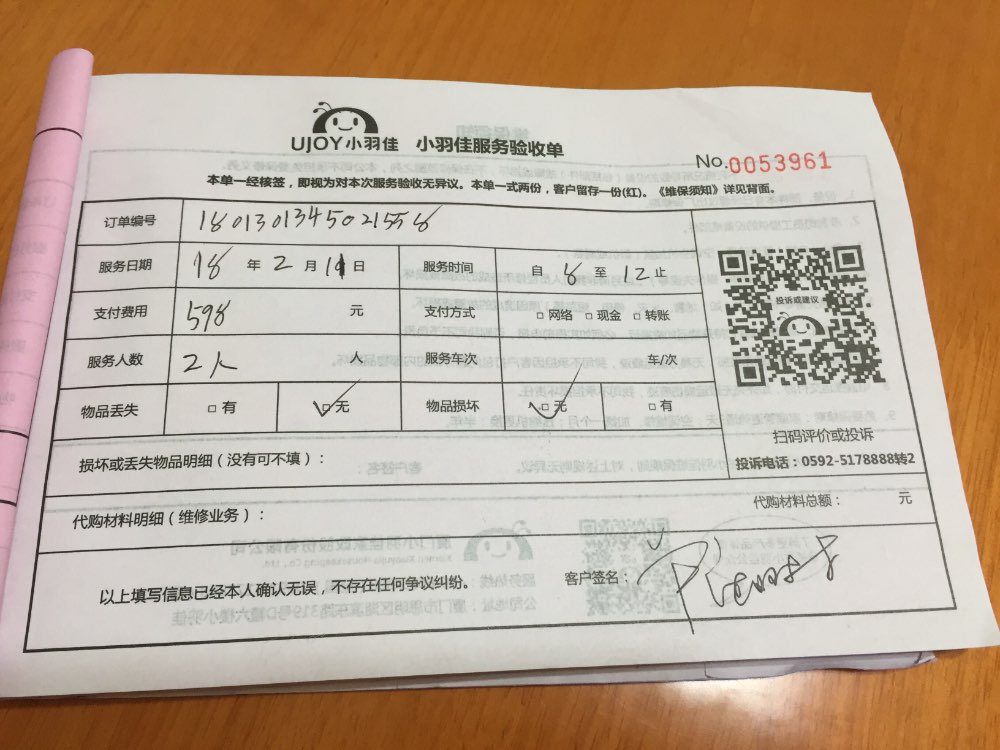 UJOY小羽佳 小羽佳服务验收单
No.0053961
本单一经核签，即视为对本次服务验收无异议。本单一式两份，客户留存一份(红)。《维保须知》详见背面。
订单编号 1801301345021558
服务日期 18 年 2 月 11 日 服务时间 自 8 至 12 止
投诉或建议
支付费用 598 元 支付方式 □ 网络 □ 现金 □ 转账
服务人数 2人 人 服务车次 车/次
物品丢失 □ 有 □ 无 物品损坏 □ 无 □ 有
扫码评价或投诉
损坏或丢失物品明细（没有可不填）：
投诉电话：0592-5178888转2
代购材料明细（维修业务）：
代购材料总额： 元
以上填写信息已经本人确认无误，不存在任何争议纠纷。 客户签名：